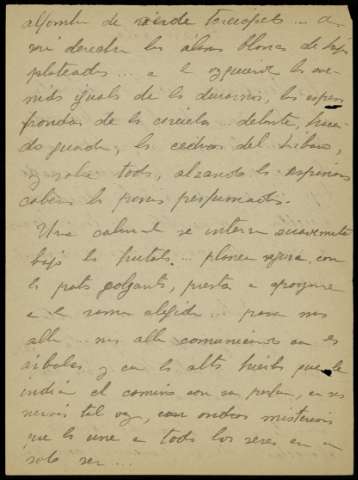 alfombra de verde terciopelo... a
mi derecha los alamos blancos de hojas
plateadas... a la izquierda las ave-
nidas iguales de los duraznos, las espesas
frondas de los ciruelos... delante, hacien-
do guardia, los cedros del Líbano,
y sobre todo, alzando las espinosas
cabezas los pinos perfumados.
Una calandria se interna suavemente
bajo los frutales... planea segura, con
las patas colgantes, presta a apoyarse
a la rama elegida... pasa mas
alla... mas alla comunicando con los
árboles y con las altas hierbas que le
indican el camino con su perfume, en sus
nervios tal vez, con ondas misteriosas
que las une a todos los seres en un
solo ser...